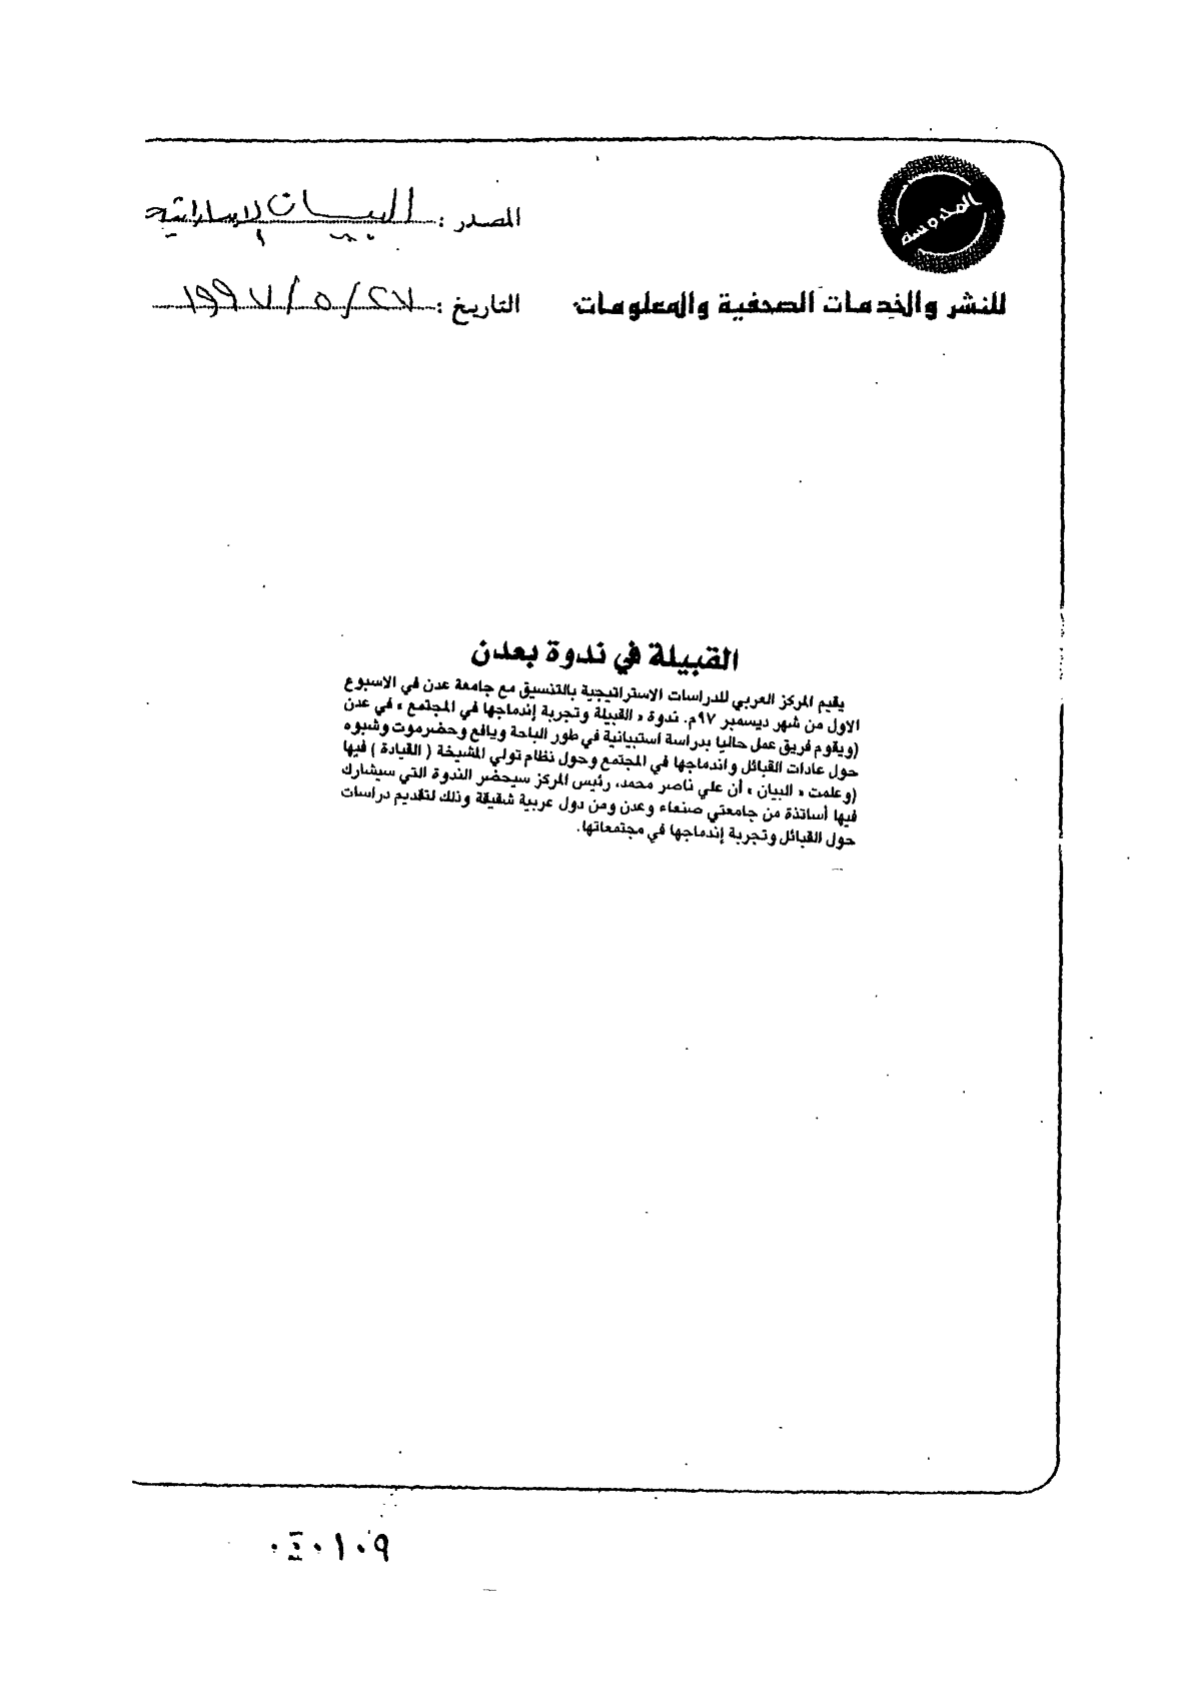 المحروسة
المصدر : البيان الإماراتية
للنشر والخدمات الصحفية والمعلومات
التاريخ : ٢٧ / ٥ / ١٩٩٧
القبيلة في ندوة بعدن
يقيم المركز العربي للدراسات الاستراتيجية بالتنسيق مع جامعة عدن في الاسبوع
الاول من شهر ديسمبر ٩٧م. ندوة « القبيلة وتجربة إندماجها في المجتمع » في عدن
(ويقوم فريق عمل حاليا بدراسة استبيانية في طور الباحة ويافع وحضرموت وشبوه
حول عادات القبائل واندماجها في المجتمع وحول نظام تولي المشيخة ( القيادة ) فيها
(وعلمت « البيان » أن علي ناصر محمد، رئيس المركز سيحضر الندوة التي سيشارك
فيها أساتذة من جامعتي صنعاء وعدن ومن دول عربية شقيقة وذلك لتقديم دراسات
حول القبائل وتجربة إندماجها في مجتمعاتها.